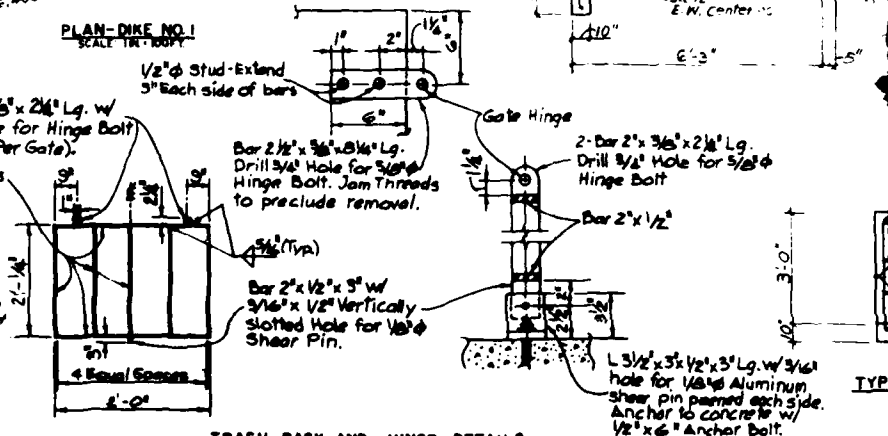 PLAN-DIKE NO 1
SCALE 1IN.-100FT.
1/2"ϕ Stud-Extend
3" Each side of bars
1"
2"
1 1/4"
6"
6"
E.W. Center
10"
6'-3"
5"
x 2 1/4" Lg. w/
for Hinge Bolt
Per Gate).
Bar 2 1/2" x 3/8" x 8 1/4" Lg.
Drill 3/4" Hole for 5/8"ϕ
Hinge Bolt. Jam Threads
to preclude removal.
Gate Hinge
2-Bar 2" x 3/8" x 2 1/4" Lg.
Drill 3/4" Hole for 5/8"ϕ
Hinge Bolt
1 1/4"
Bar 2" x 1/2"
2 1/2"
5/16" (Typ.)
2'-1 1/4"
Bar 2" x 1/2" x 3" w/
3/16" x 1/2" Vertically
Slotted Hole for 1/8"ϕ
Shear Pin.
3"
4 Equal Spaces
2'-0"
2"
2 1/2"
3 1/2"
3'-0"
10"
L 3 1/2" x 3" x 1/2" x 3" Lg. w/ 3/16"
hole for 1/8"ϕ Aluminum
shear pin peened each side.
Anchor to concrete w/
1/2" x 6" Anchor Bolt.
TYP
TRASH RACK AND HINGE DETAILS